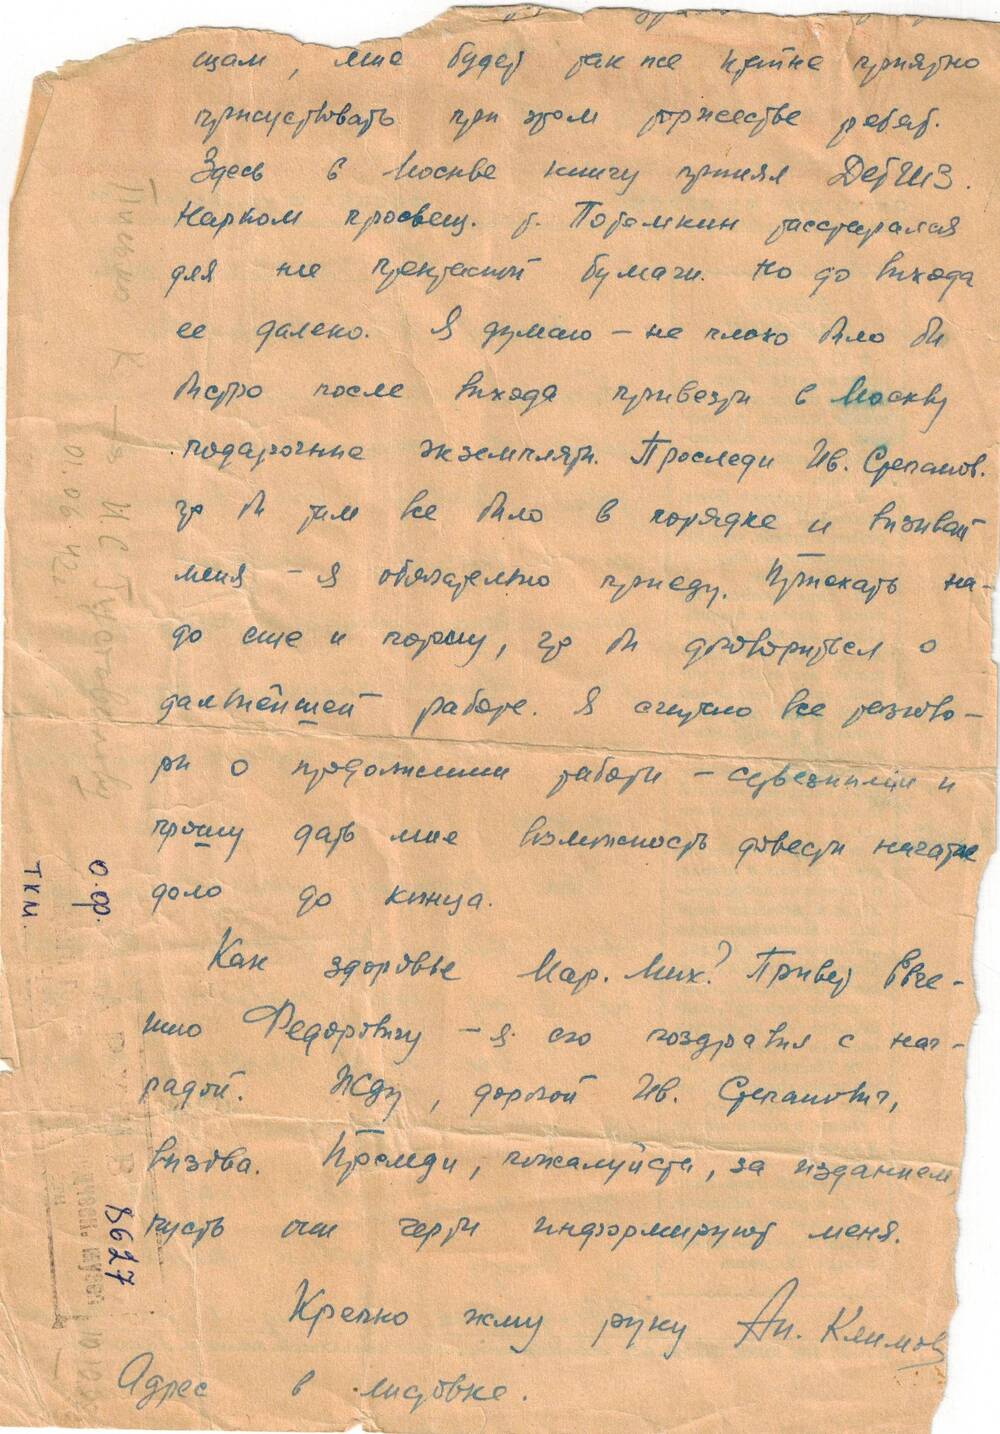 щам, мне будет так же крайне приятно
присуствовать при этом торжестве ребят.
Здесь в Москве книгу принял ДЕТГИЗ.
Нарком просвещ. т. Потемкин расстарался
для нее прекрасной бумаги. Но до выхода
ее далеко. Я думаю – не плохо было бы
быстро после выхода привезти в Москву
подарочные экземпляры. Проследи Ив. Степанов.
что бы там все было в порядке и вызывай
меня – я обязательно приеду. Приехать на-
до еще и потому, что бы договориться о
дальнейшей работе. Я считаю все разгово-
ры о продолжении работы – серьезными и
прошу дать мне возможность довести начатое
дело до конца.
Как здоровье Мар. Мих.? Привет Евге-
нию Федоровичу – я его поздравил с наг-
радой. Жду, дорогой Ив. Степанович,
вызова. Проследи, пожалуйста, за изданием,
пусть они черти информируют меня.
Крепко жму руку Ан. Климов
Адрес в листовке.
Письмо К
И С Густовскому
01.06.42г.
О.Ф.
ТКМ.
8627